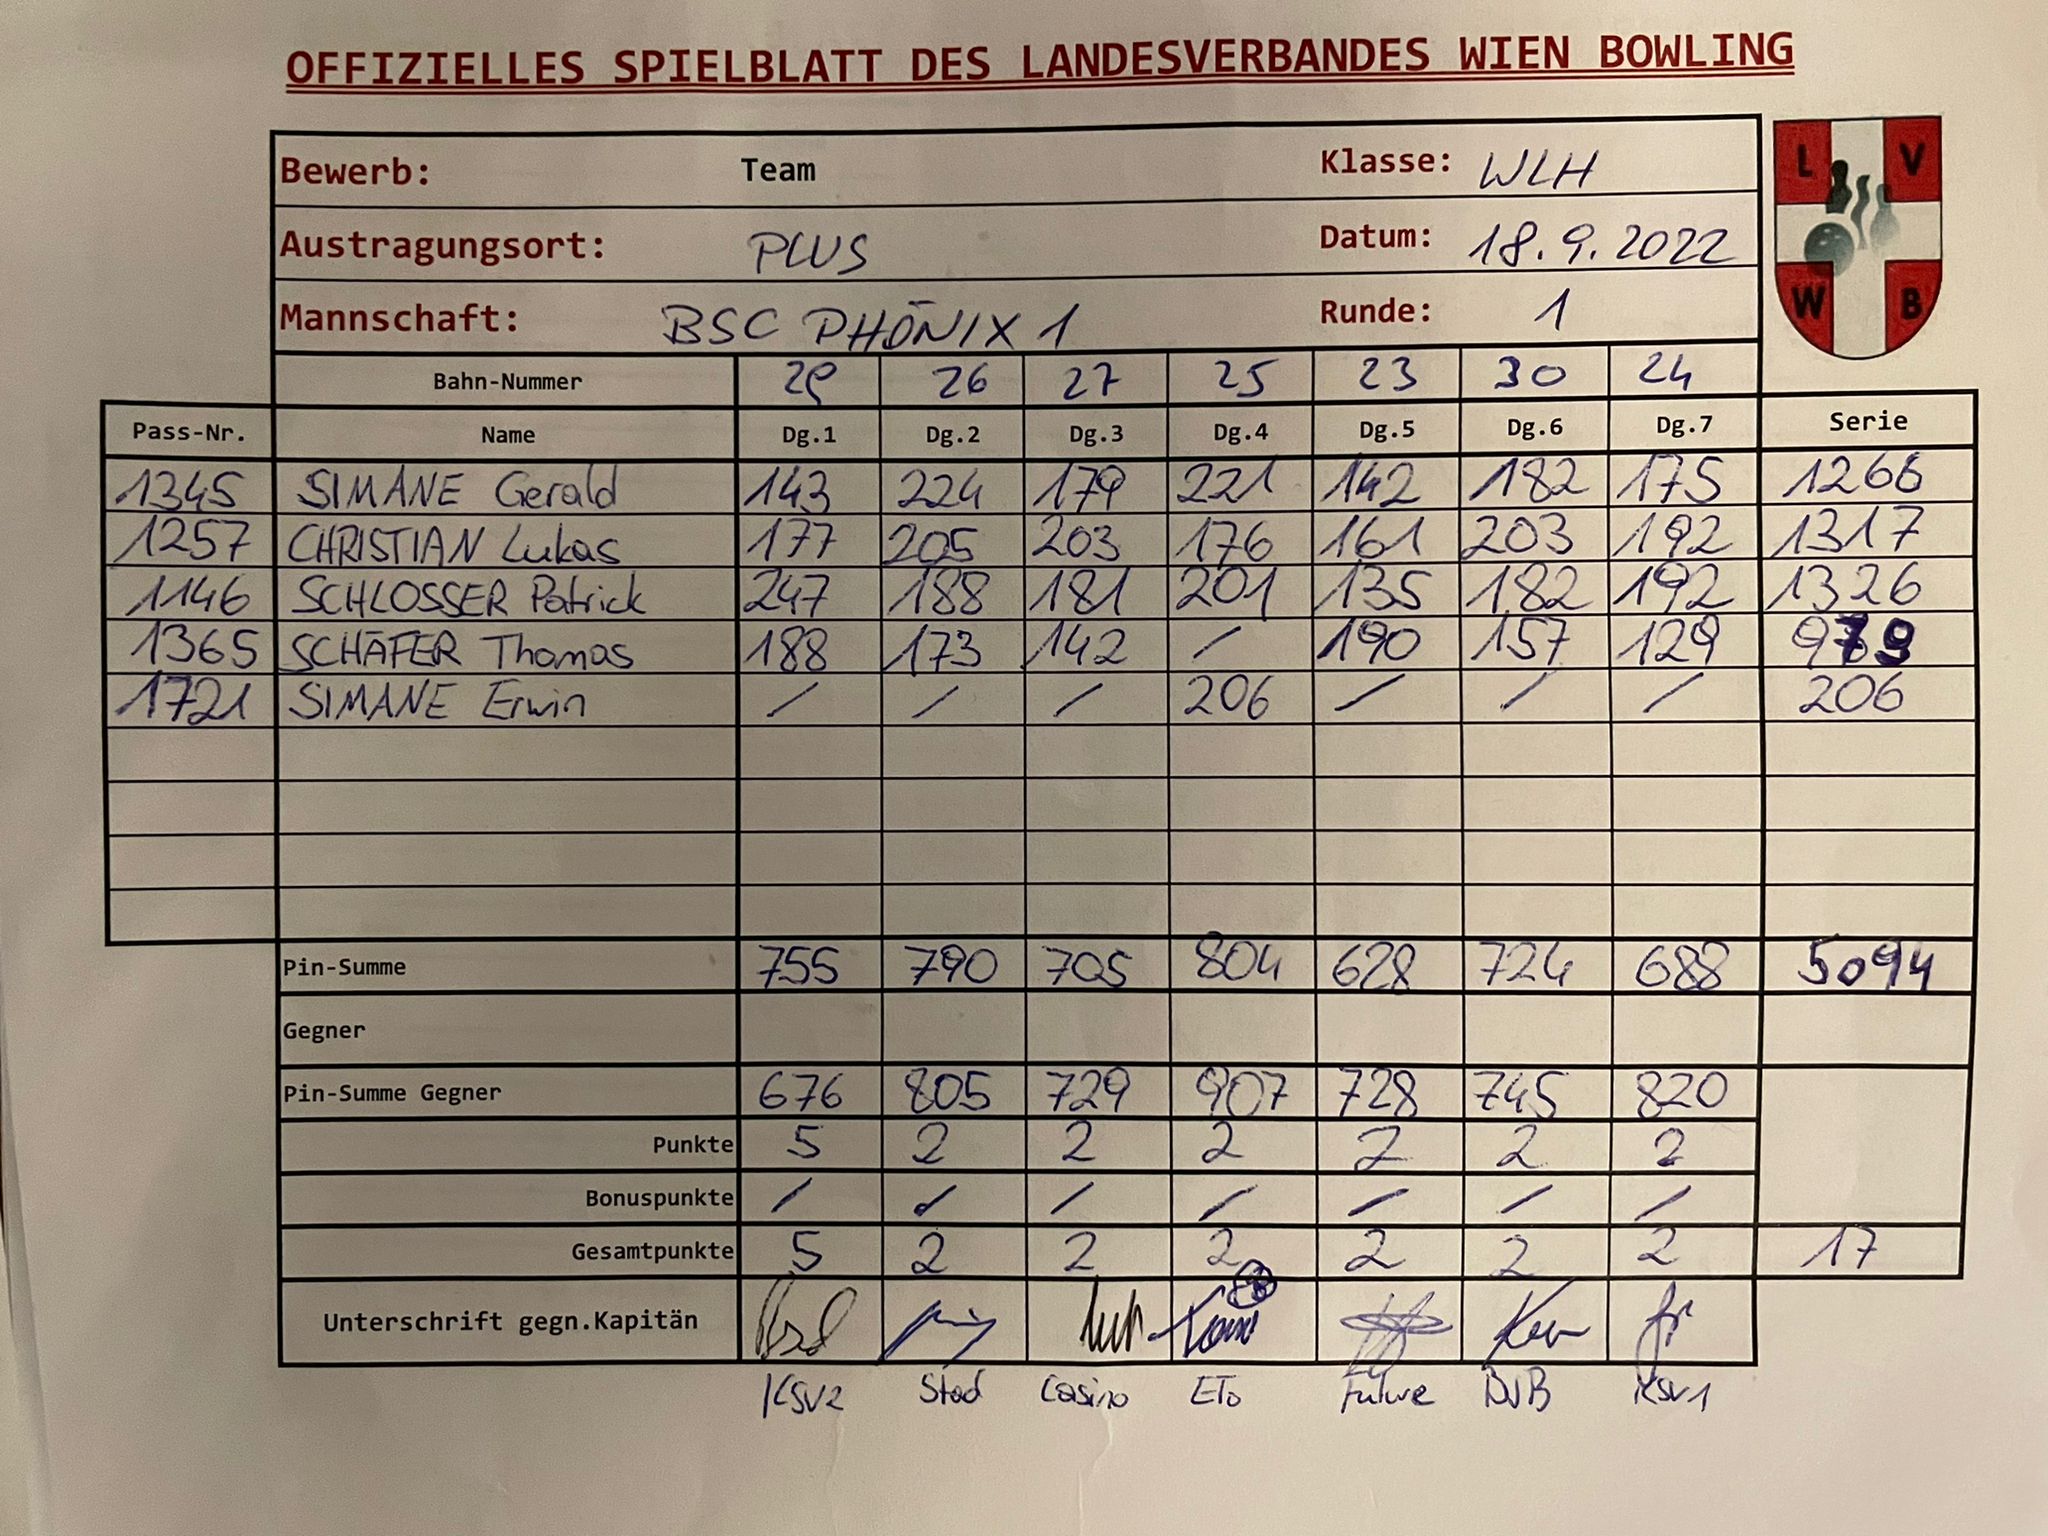 OFFIZIELLES SPIELBLATT DES LANDESVERBANDES WIEN BOWLING
Bewerb: Team Klasse: WLH
Austragungsort: PLUS Datum: 18.9.2022
Mannschaft: BSC PHÖNIX 1 Runde: 1
L V
W B
Bahn-Nummer 29 26 27 25 23 30 24
Pass-Nr. Name Dg.1 Dg.2 Dg.3 Dg.4 Dg.5 Dg.6 Dg.7 Serie
1345 SIMANE Gerald 143 224 179 221 142 182 175 1266
1257 CHRISTIAN Lukas 177 205 203 176 161 203 192 1317
1146 SCHLOSSER Patrick 247 188 181 201 135 182 192 1326
1365 SCHÄFER Thomas 188 173 142 / 190 157 129 979
1721 SIMANE Erwin / / / 206 / / / 206
Pin-Summe 755 790 705 804 628 724 688 5094
Gegner
Pin-Summe Gegner 676 805 729 907 728 745 820
Punkte 5 2 2 2 2 2 2
Bonuspunkte / / / / / / /
Gesamtpunkte 5 2 2 2 2 2 2 17
Unterschrift gegn.Kapitän
KSV2 Stad Casino ETo Future BVB KSV1